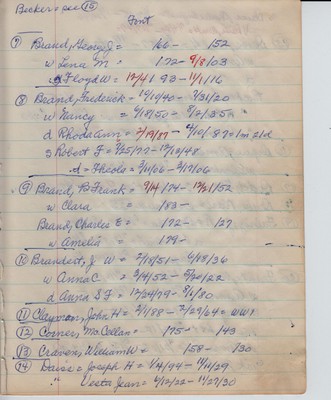 Becker = see (15)
Font
(7) Brand, George J = 166 - 152
w Lena M = 172 - 9/8/03
s Floyd W = 12/4/93 - 11/1/16
(8) Brand, Frederick - 10/10/40 - 7/31/20
w Nancy = 4/18/50 - 8/2/35
d Rhoda Ann = 2/19/87 - 4/10/87 = 1m 21d
s Robert F = 7/25/77 - 12/10/48
d = Theola = 3/11/06 - 4/17/06
(9) Brand, B. Frank = 9/14/74 - 12/21/52
w Clara = 183 -
Brand, Charles E = 172 - 127
w Amelia = 179 -
10 Brandert, J W = 2/18/51 - 4/18/36
w Anna C = 3/4/52 - 5/20/22
d Anna S F = 12/24/79 - 8/6/80
(11) Clayman, John H = 2/1/88 - 7/29/64 = WW1
(12) Corners, McCellan = 175 - 143
(13) Craven, William W = 158 - 130
(14) Davis = Joseph H = 1/4/94 - 11/11/29
Vesta Jean = 6/12/22 - 11/27/30